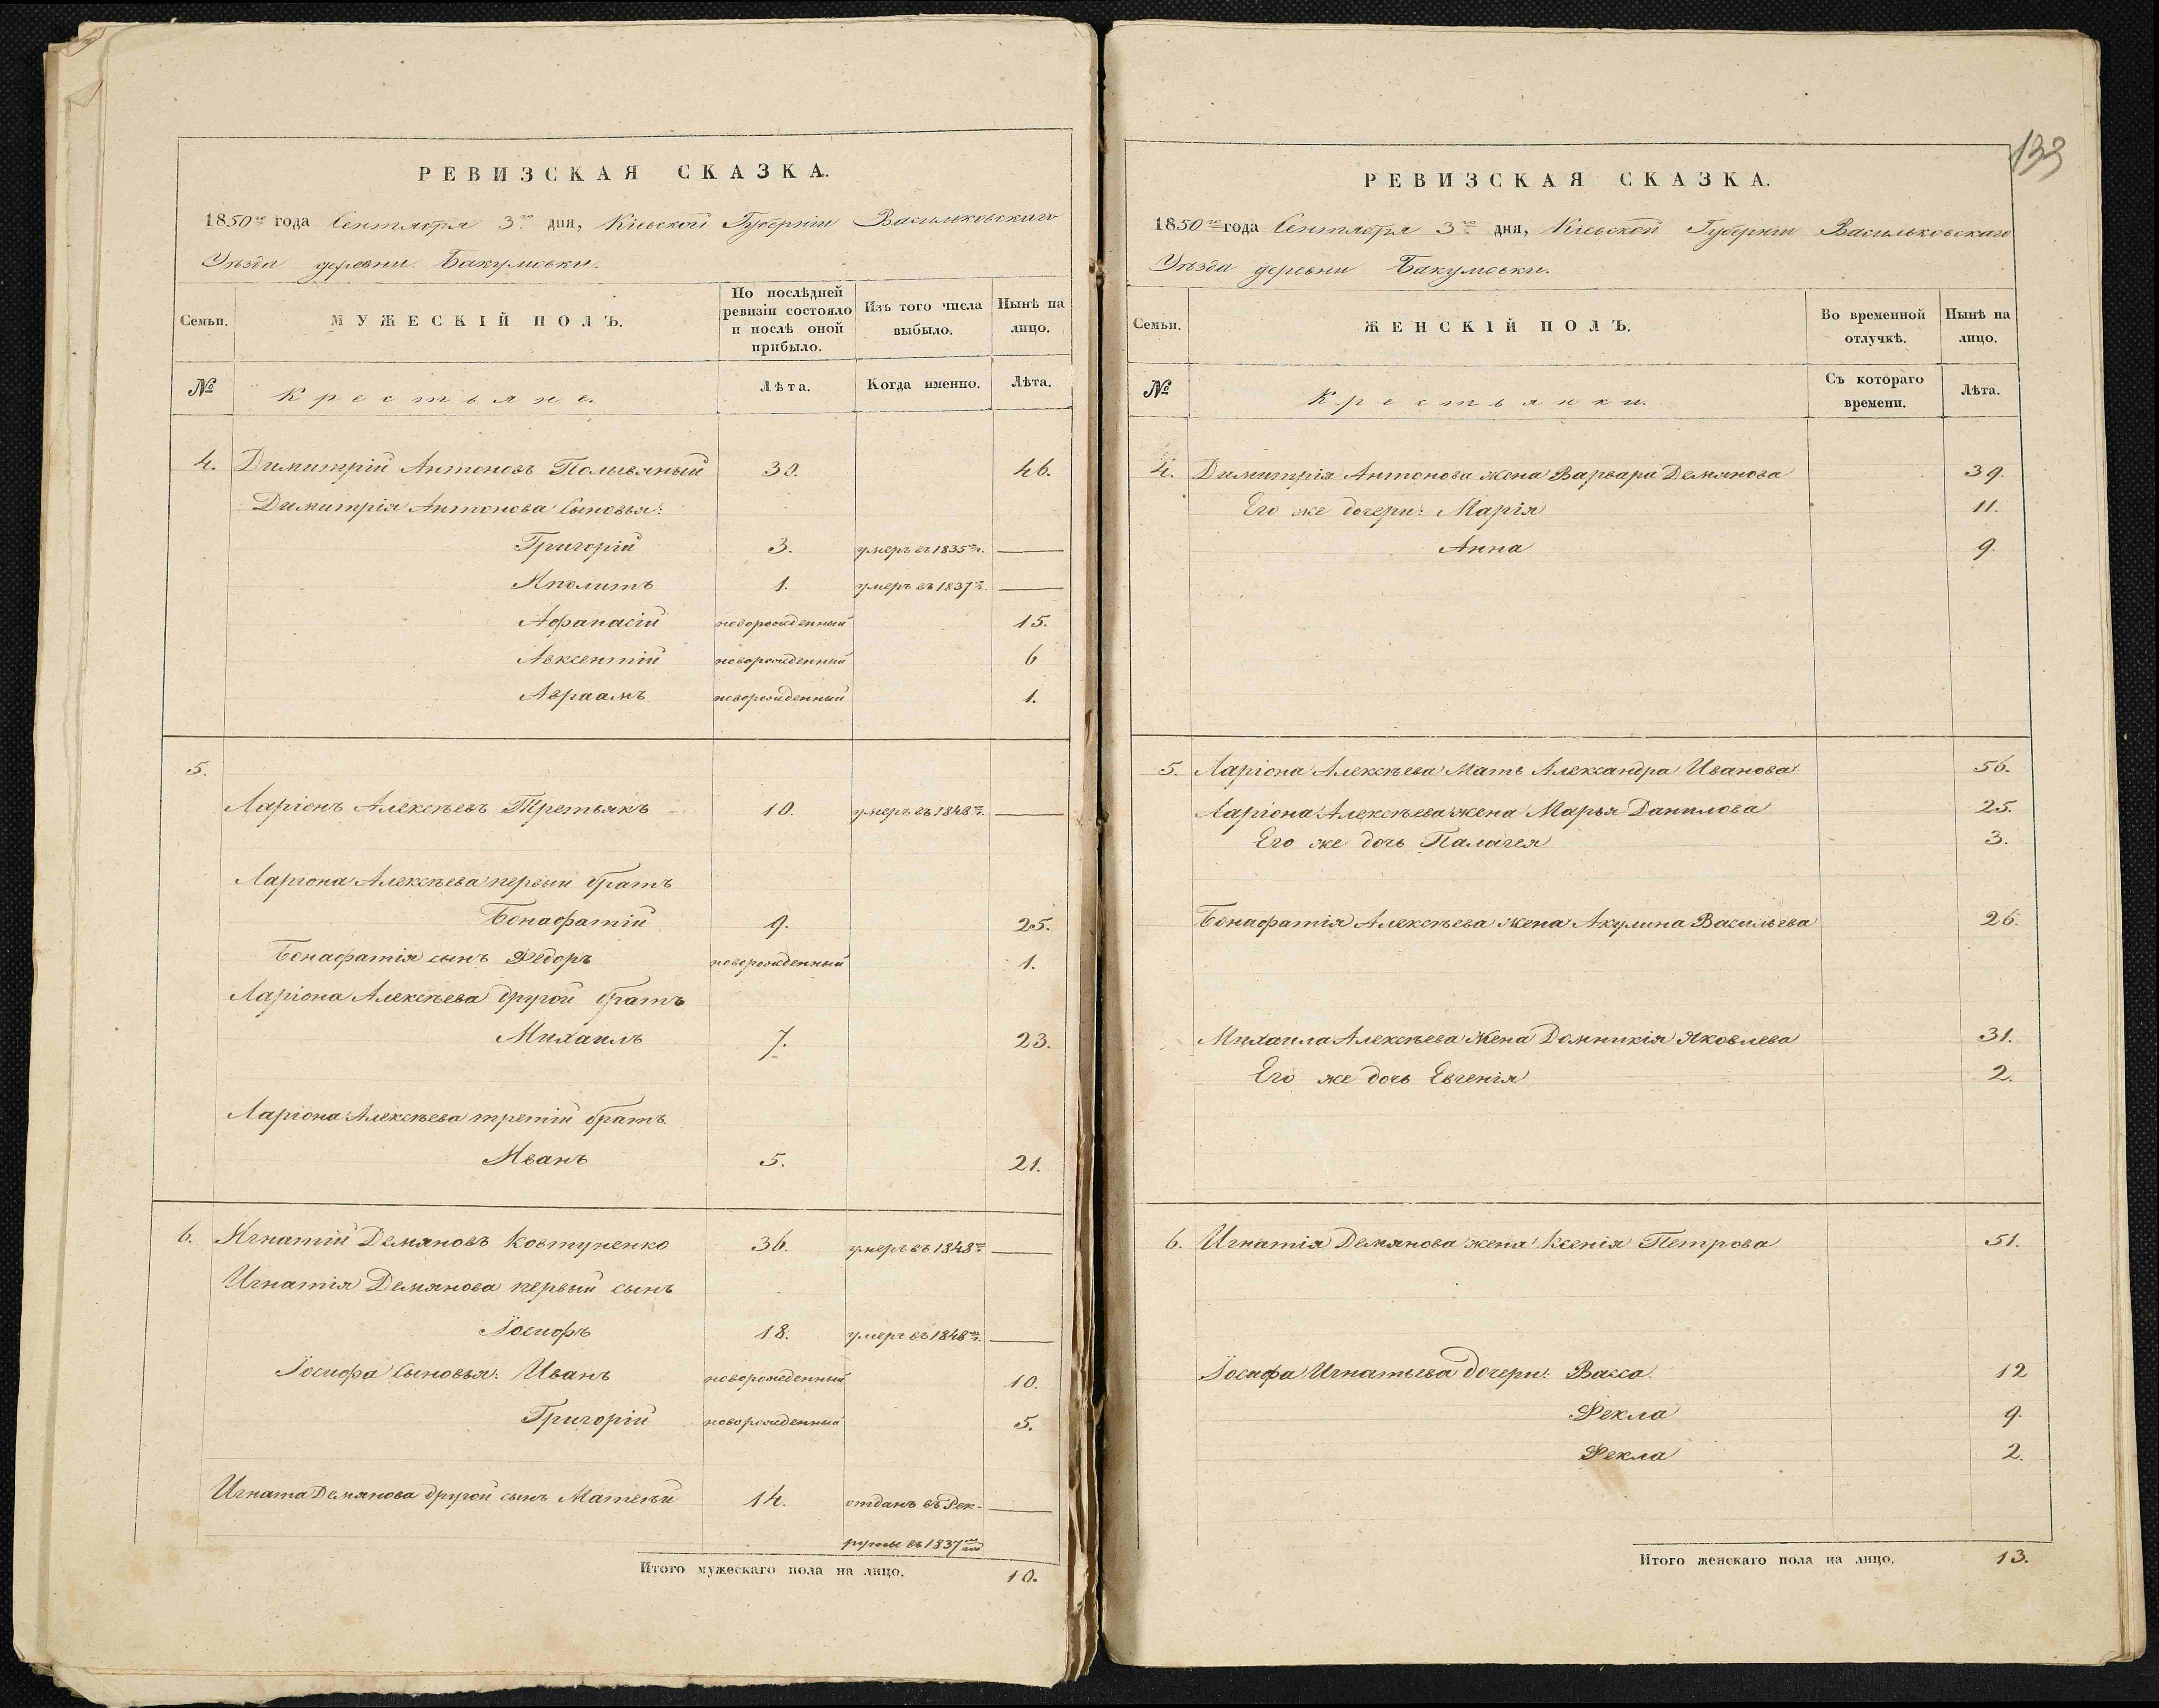 РЕВИЗСКАЯ СКАЗКА.
1850го года Сентября 3го дня, Кіевской Губерніи Васильковскаго
Уѣзда деревни Бакумовки.
Семьи.
МУЖЕСКІЙ ПОЛЪ.
По послѣдней ревизіи состояло и послѣ оной прибыло.
Изъ того числа выбыло.
Нынѣ на лицо.
№
Крестьяне.
Лѣта.
Когда именно.
Лѣта.
4. Димитрій Антоновъ Польвяный 30. 46.
Димитрія Антонова Сыновья:
Григорій 3. умеръ въ 1835мъ г. —
Иполитъ 1. умеръ въ 1837мъ г. —
Афанасій новорожденный 15.
Авксентій новорожденный 6
Авраамъ новорожденный 1.
5.
Ларіонъ Алексѣевъ Третьякъ 10. умеръ въ 1848мъ г. —
Ларіона Алексѣева первый братъ
Бонафатій 9. 25.
Бонафатія сынъ Федоръ новорожденный 1.
Ларіона Алексѣева другой братъ
Михаилъ 7. 23.
Ларіона Алексѣева третій братъ
Иванъ 5. 21.
6. Игнатій Демяновъ Ковтуненко 36. умеръ въ 1848мъ —
Игнатія Демянова первый сынъ
Іосифъ 18. умеръ въ 1848мъ г. —
Іосифа Сыновья: Иванъ новорожденный 10.
Григорій новорожденный 5.
Игната Демянова другой сынъ Матвѣй 14. отданъ въ Рек- —
руты въ 1837мъ году
Итого мужескаго пола на лицо. 10.
139
РЕВИЗСКАЯ СКАЗКА.
1850го года Сентября 3го дня, Кіевской Губерніи Васильковскаго
Уѣзда деревни Бакумовки.
Семьи.
ЖЕНСКІЙ ПОЛЪ.
Во временной отлучкѣ.
Нынѣ на лицо.
№
Крестьянки.
Съ котораго времени.
Лѣта.
4. Димитрія Антонова жена Варвара Демянова 39.
Его же дочери: Марія 11.
Анна 9.
5. Ларіона Алексѣева Мать Александра Иванова 56.
Ларіона Алексѣева жена Марья Данилова 25.
Его же дочь Палагея 3.
Бонафатія Алексѣева жена Акулина Васильева 26.
Михаила Алексѣева Жена Домникія Яковлева 31.
Его же дочь Евгенія 2.
6. Игнатія Демянова жена Ксенія Петрова 51.
Іосифа Игнатьева дочери: Васса 12
Фекла 9.
Фекла 2.
Итого женскаго пола на лицо. 13.